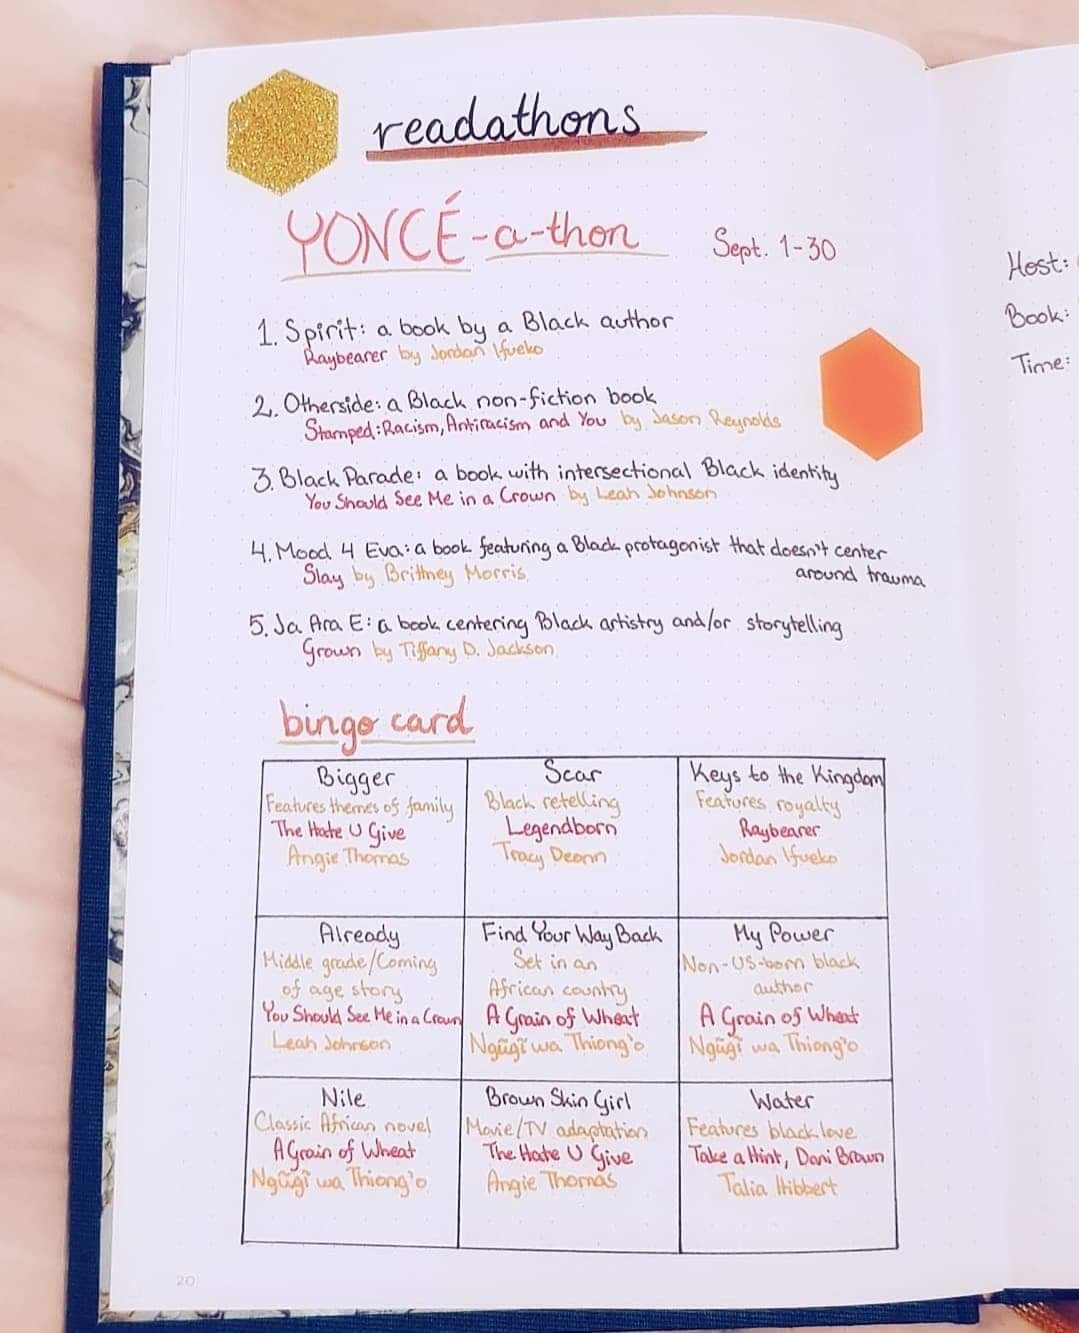 readathons
YONCÉ-a-thon
Sept. 1-30
1. Spirit: a book by a Black author
Raybearer by Jordan Ifueko
2. Otherside: a Black non-fiction book
Stamped: Racism, Antiracism and You by Jason Reynolds
3. Black Parade: a book with intersectional Black identity
You Should See Me in a Crown by Leah Johnson
4. Mood 4 Eva: a book featuring a Black protagonist that doesn't center
around trauma
Slay by Brittney Morris
5. Ja Ara E: a book centering Black artistry and/or storytelling
Grown by Tiffany D. Jackson
bingo card
Bigger
Features themes of family
The Hate U Give
Angie Thomas
Scar
Black retelling
Legendborn
Tracy Deonn
Keys to the Kingdom
Features royalty
Raybearer
Jordan Ifueko
Already
Middle grade/Coming
of age story
You Should See Me in a Crown
Leah Johnson
Find Your Way Back
Set in an
African country
A Grain of Wheat
Ngũgĩ wa Thiong'o
My Power
Non-US-born black
author
A Grain of Wheat
Ngũgĩ wa Thiong'o
Nile
Classic African novel
A Grain of Wheat
Ngũgĩ wa Thiong'o
Brown Skin Girl
Movie/TV adaptation
The Hate U Give
Angie Thomas
Water
Features black love
Take a Hint, Dani Brown
Talia Hibbert
20
Host:
Book:
Time: